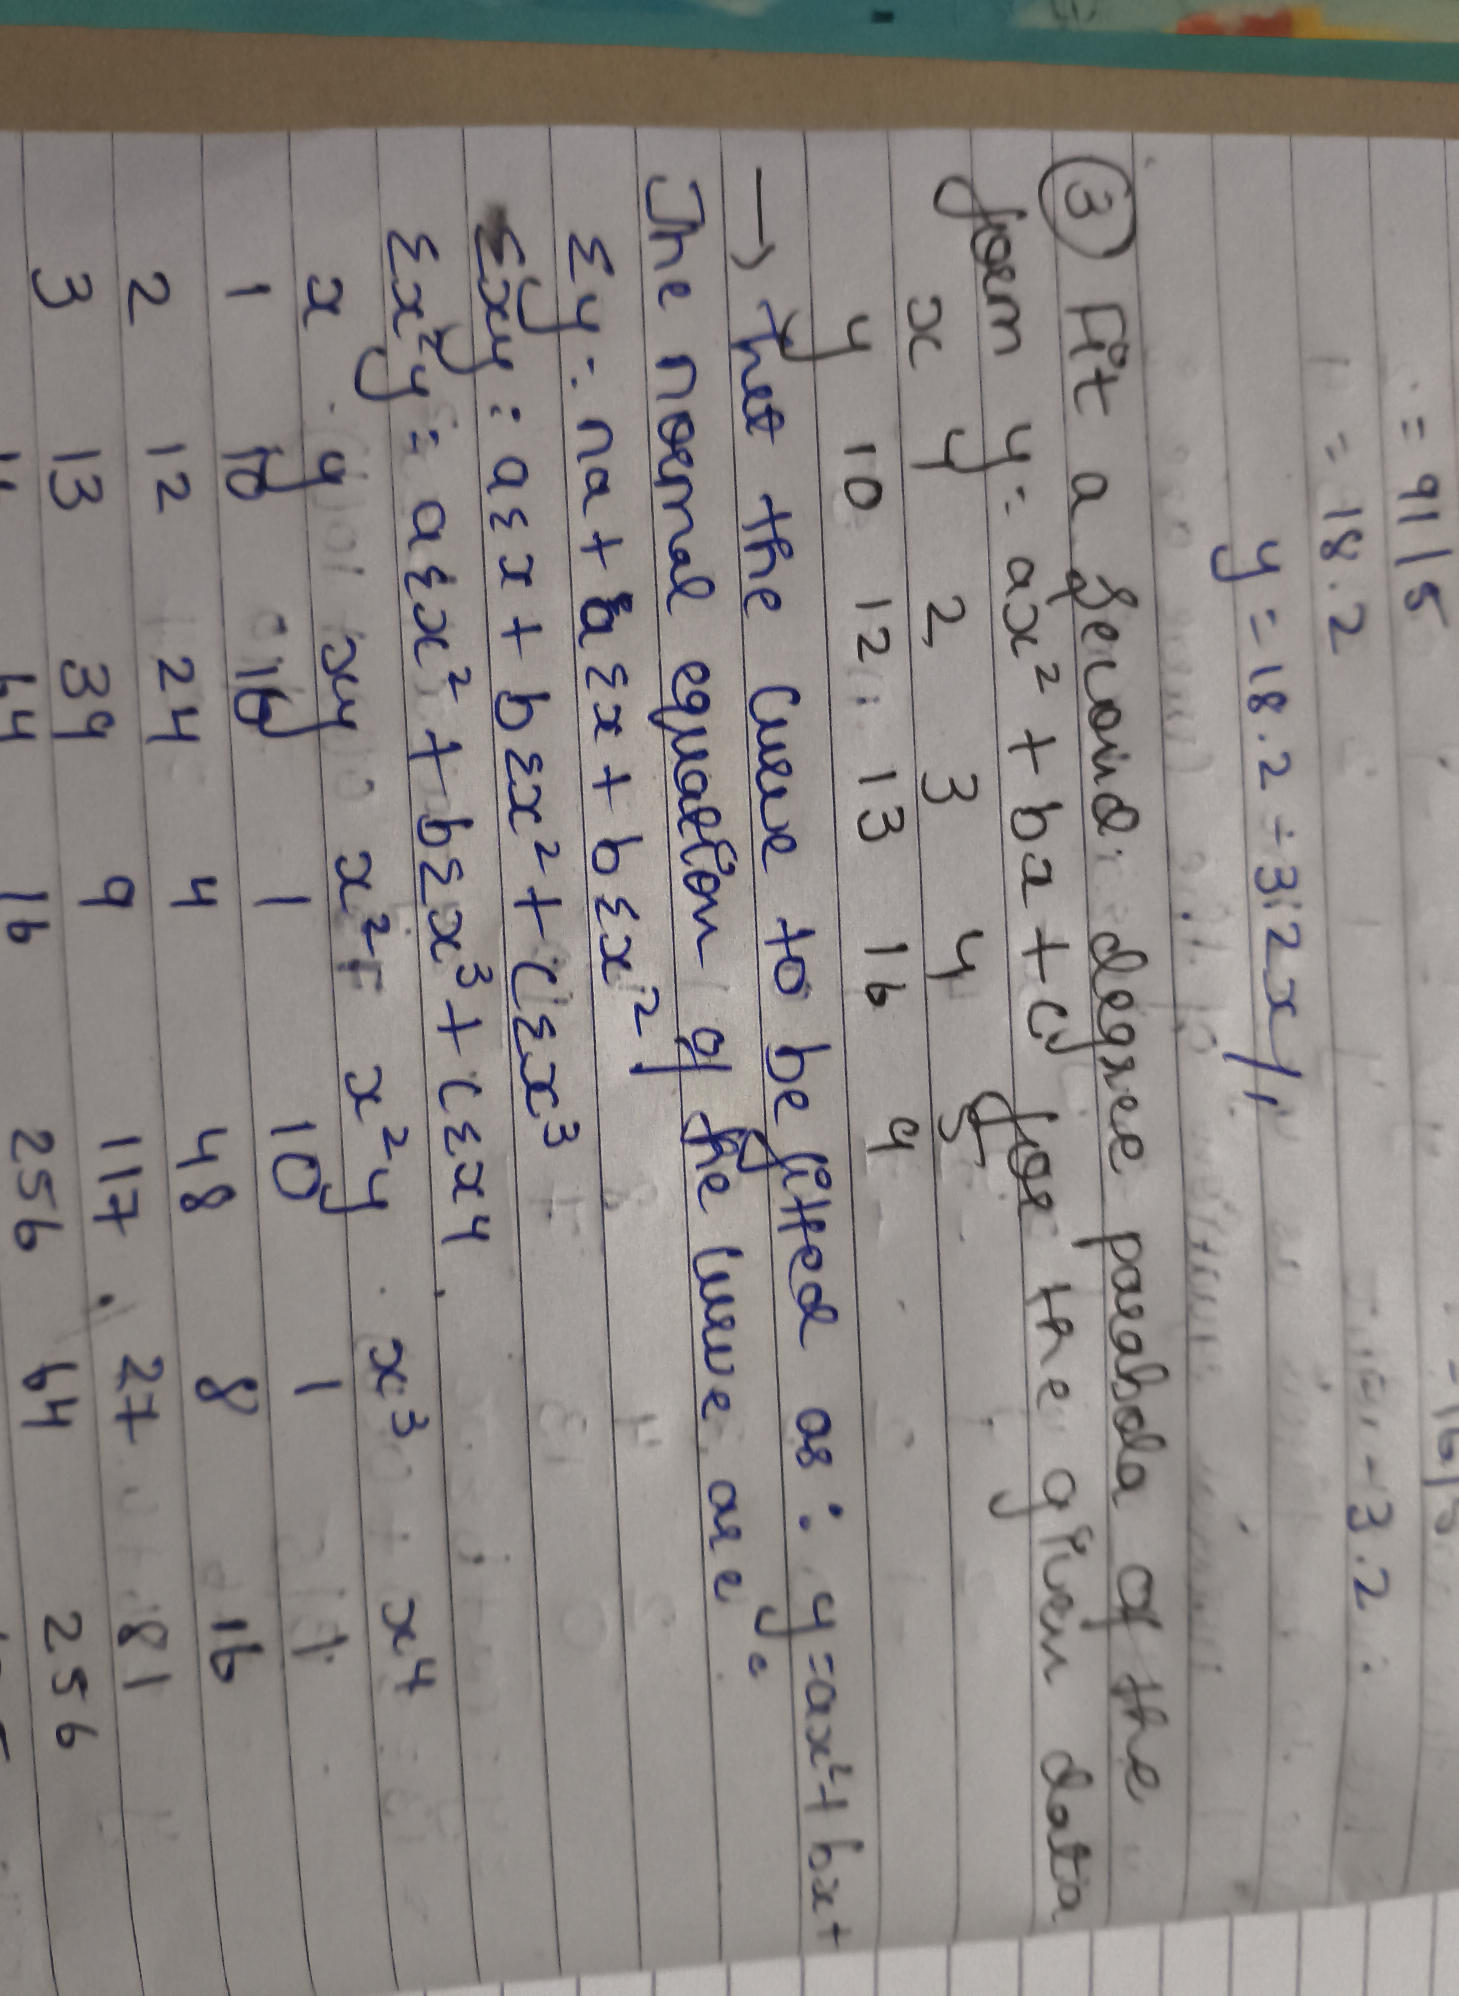 = 91/5
= 18.2
- 3.2
y = 18.2 + 3.2x //
③ Fit a second degree parabola of the
form y = ax² + bx + c, for the given data
x y 2 3 4 5
y 10 12 13 16 9
→ Let the curve to be fitted as : y = ax² + bx +
The normal equation of the curve are
Σy = na + Σx + bΣx²
Σxy = aΣx + bΣx² + cΣx³
Σx²y = aΣx² + bΣx³ + cΣx⁴
x y xy x² x²y x³ x⁴
1 10 10 1 10 1 1
2 12 24 4 48 8 16
3 13 39 9 117 27 81
64 16 256 64 256